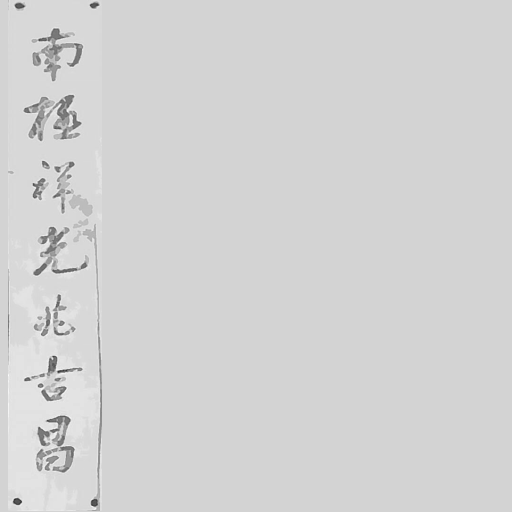 南極祥光兆吉昌